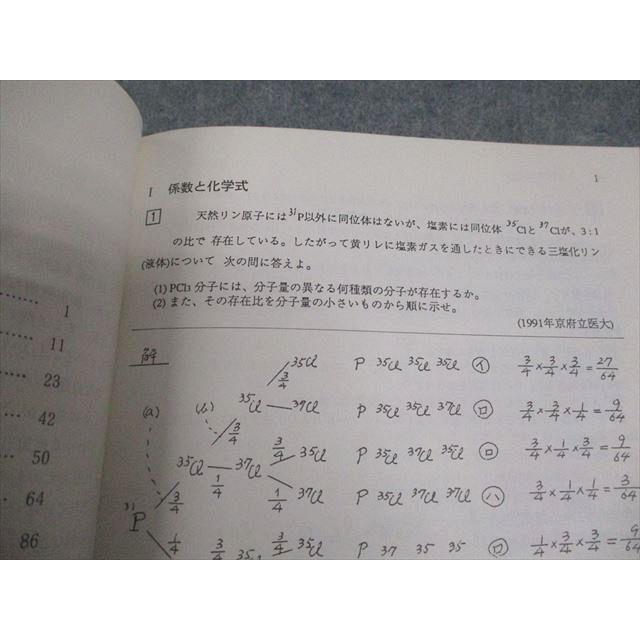 1
11
23
42
50
64
86
1
I 係数と化学式
1 天然リン原子には³¹P以外に同位体はないが、塩素には同位体 ³⁵Clと ³⁷Clが、3:1
の比で 存在している。したがって黄リレに塩素ガスを通したときにできる三塩化リン
(液体)について 次の問に答えよ。
(1) PCl₃ 分子には、分子量の異なる何種類の分子が存在するか。
(2) また、その存在比を分子量の小さいものから順に示せ。
(1991年京府立医大)
解
3/4 ³⁵Cl P ³⁵Cl ³⁵Cl ³⁵Cl イ 3/4×3/4×3/4=27/64
(a) (b) ³⁵Cl ³⁷Cl P ³⁵Cl ³⁵Cl ³⁷Cl ロ 3/4×3/4×1/4=9/64
3/4 3/4 ³⁵Cl P ³⁵Cl ³⁷Cl ³⁵Cl ロ 3/4×1/4×3/4=9/64
³⁵Cl 1/4 ³⁷Cl
3/4 1/4 ³⁷Cl P ³⁵Cl ³⁷Cl ³⁷Cl ハ 3/4×1/4×1/4=3/64
³¹P
1/4 3/4 3/4 ³⁵Cl P 37 35 35 ロ 1/4×3/4×3/4=9/64